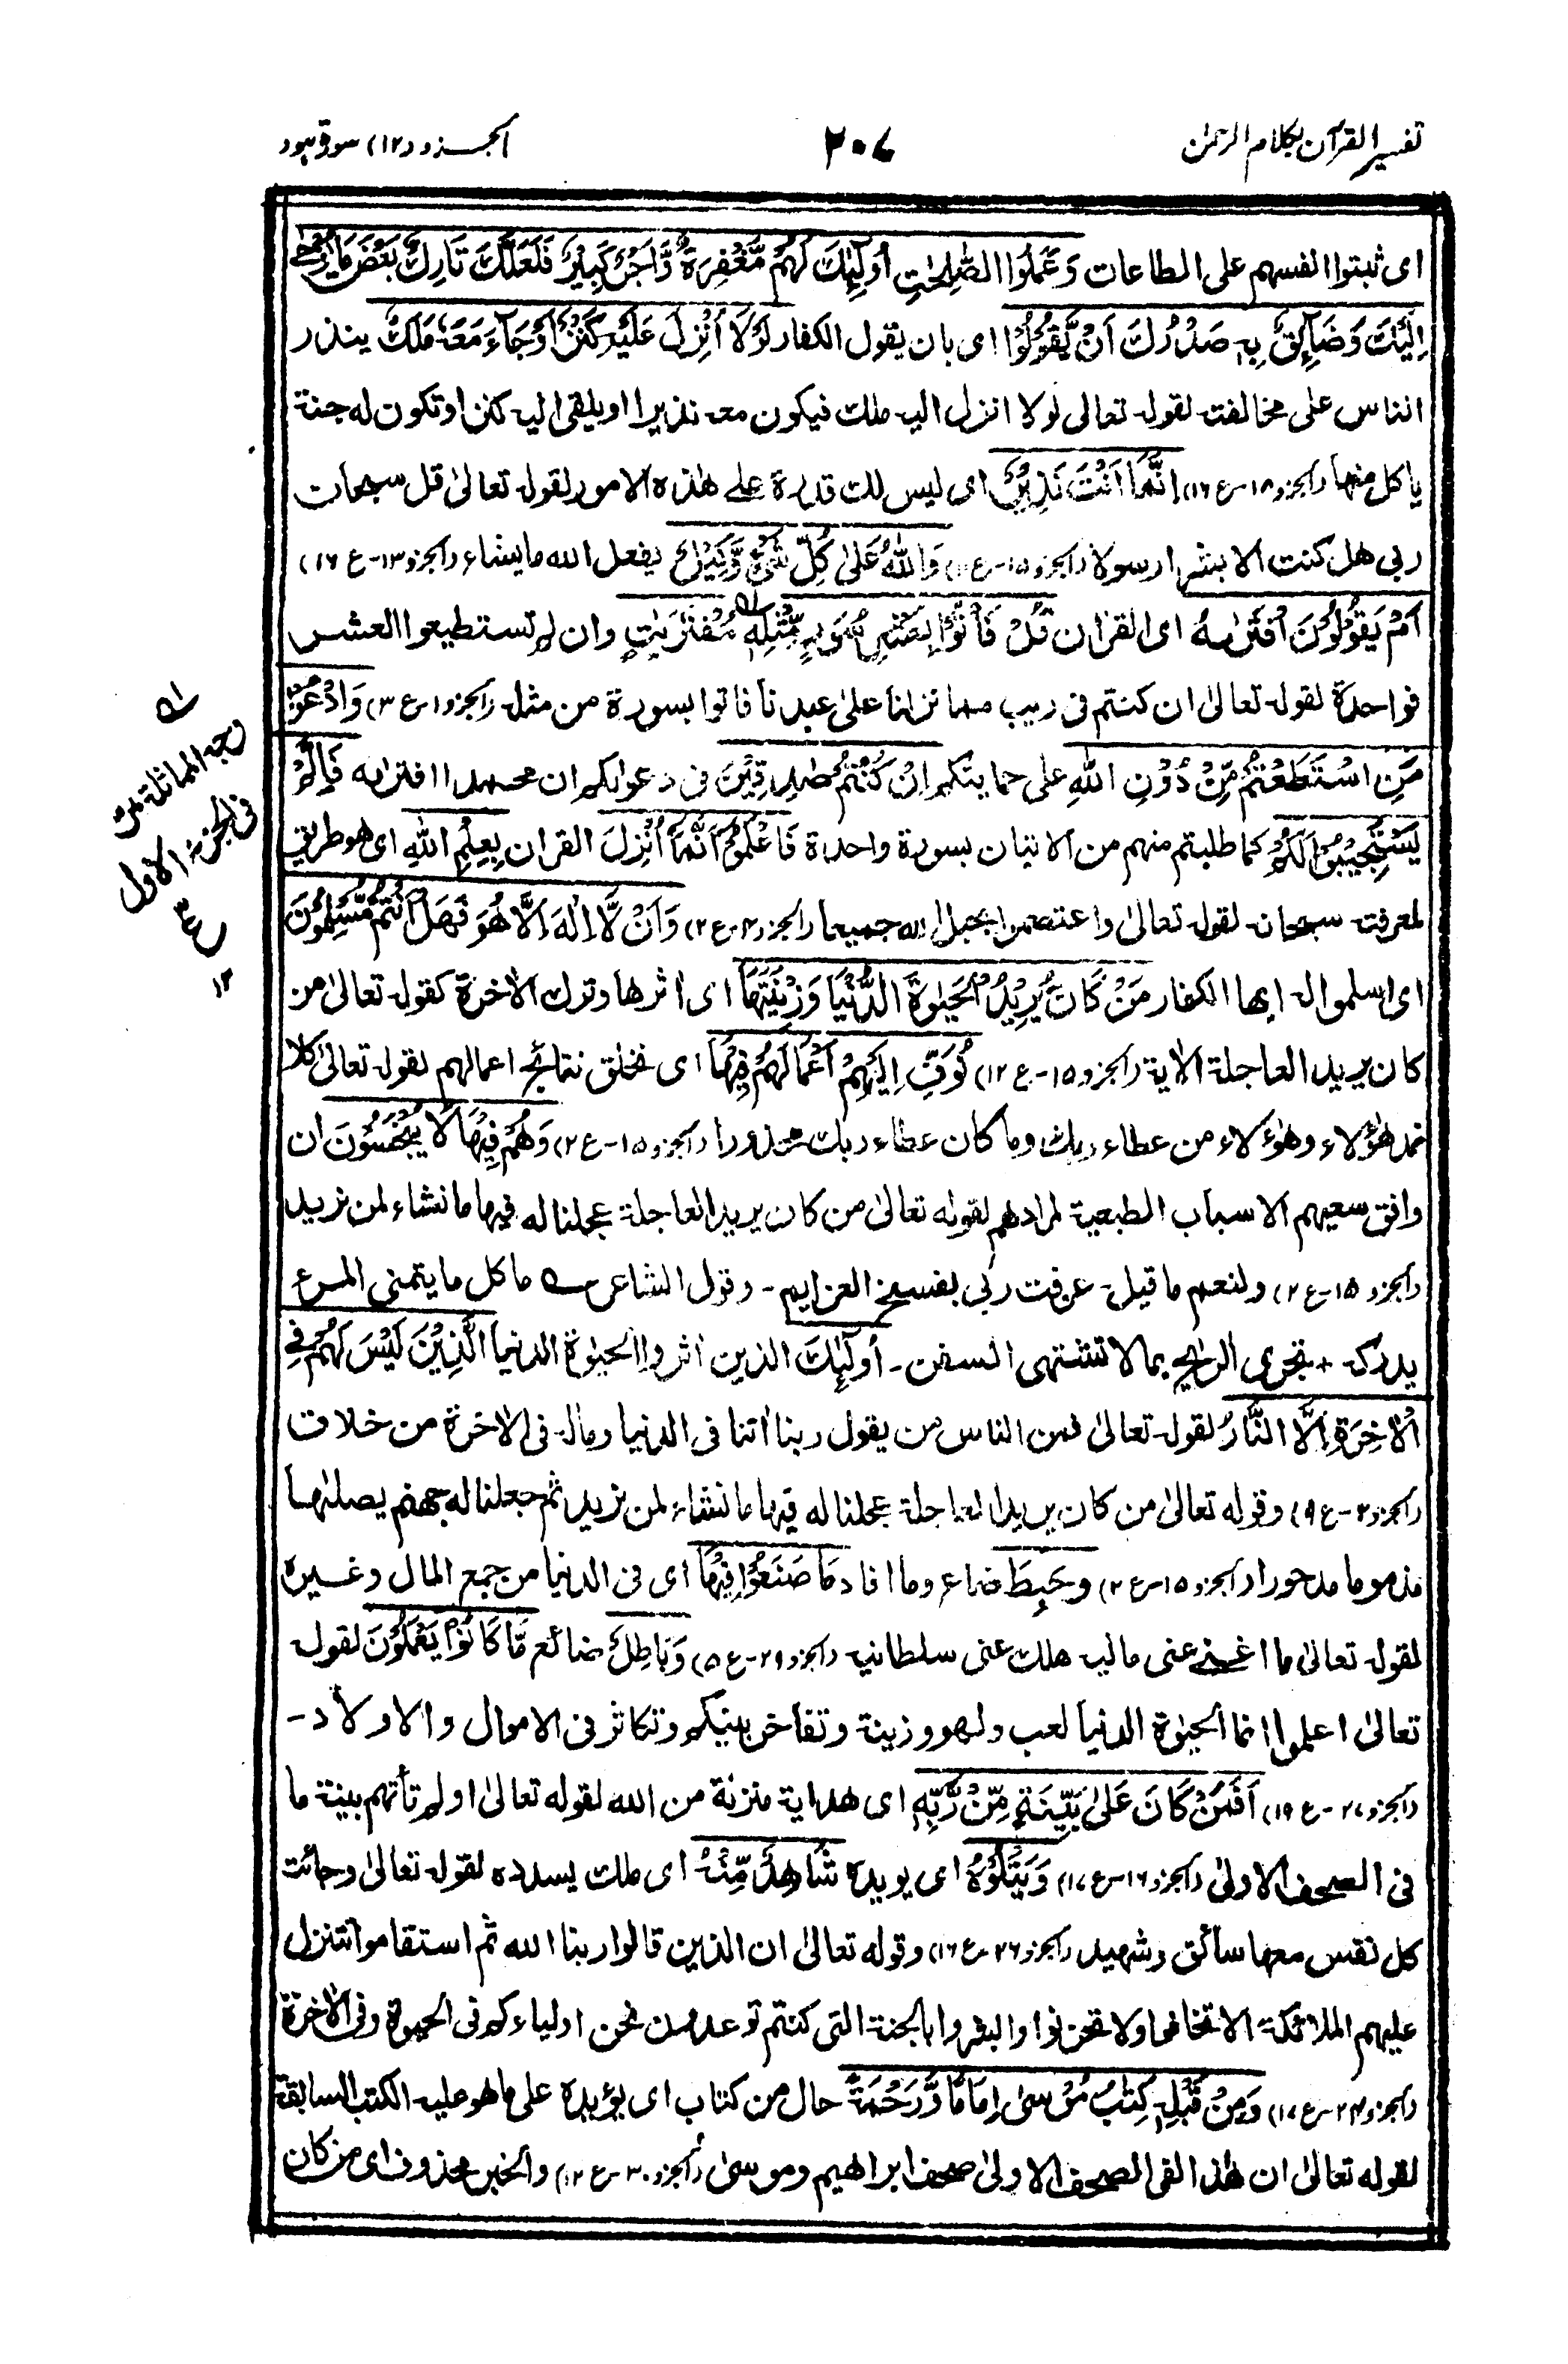 تفسير القرآن بكلام الرحمٰن
٢٠٧
الجزو (١٢) سورة هود
اى ثبتوا انفسهم على الطاعات وَعَمِلُوا الصّٰلِحٰتِ اُولٰٓئِكَ لَهُمْ مَّغْفِرَةٌ وَّاَجْرٌ كَبِيْرٌ فَلَعَلَّكَ تَارِكٌۢ بَعْضَ مَا يُوْحٰٓى
اِلَيْكَ وَضَآئِقٌۢ بِهٖ صَدْرُكَ اَنْ يَّقُوْلُوْا اى بان يقول الكفار لَوْلَا اُنْزِلَ عَلَيْهِ كَنْزٌ اَوْ جَآءَ مَعَهٗ مَلَكٌ ينذر
الناس على مخالفته لقوله تعالى لولا انزل اليه ملك فيكون معه نذيرا او يلقى اليه كنز او تكون له جنة
ياكل منها (الجزو ١٨-ع ١٦) اِنَّمَا اَنْتَ نَذِيْرٌ اى ليس لك قدرة علے هٰذه الامور لقوله تعالىٰ قل سبحان
ربى هل كنت الا بشرا رسولا (الجزو ١٥-ع) وَاللّٰهُ عَلٰى كُلِّ شَىْءٍ وَّكِيْلٌ يفعل الله ما يشاء (الجزو ١٣-ع ١٦)
اَمْ يَقُوْلُوْنَ افْتَرٰىهُ اى القرٰان قُلْ فَاْتُوْا بِعَشْرِ سُوَرٍ مِّثْلِهٖ مُفْتَرَيٰتٍ وان لم تستطيعوا العشر
فواحدة لقوله تعالىٰ ان كنتم فى ريب مما نزلنا علىٰ عبدنا فاتوا بسورة من مثله (الجزو ١-ع ٣) وَادْعُوْا
مَنِ اسْتَطَعْتُمْ مِّنْ دُوْنِ اللّٰهِ على حمايتكم اِنْ كُنْتُمْ صٰدِقِيْنَ فى دعواكم ان محمدا افتراه فَاِلَّمْ
يَسْتَجِيْبُوْا لَكُمْ كما طلبتم منهم من الاتيان بسورة واحدة فَاعْلَمُوْا اَنَّمَا اُنْزِلَ القران بِعِلْمِ اللّٰهِ اى هو طريق
لمعرفته سبحانه لقوله تعالىٰ واعتصموا بحبل الله جميعا (الجزو ٤-ع ٢) وَاَنْ لَّا اِلٰهَ اِلَّا هُوَ فَهَلْ اَنْتُمْ مُّسْلِمُوْنَ
اى اسلموا له ايها الكفار مَنْ كَانَ يُرِيْدُ الْحَيٰوةَ الدُّنْيَا وَزِيْنَتَهَا اى اثرها وترك الاٰخرة كقوله تعالىٰ من
كان يريد العاجلة الاٰية (الجزو ١٥-ع ١٢) نُوَفِّ اِلَيْهِمْ اَعْمَالَهُمْ فِيْهَا اى نخلق نتائج اعمالهم لقوله تعالىٰ كلا
نمد هٰؤلاء وهٰؤلاء من عطاء ربك وما كان عطاء ربك محذورا (الجزو ١٥-ع ٢) وَهُمْ فِيْهَا لَا يُبْخَسُوْنَ ان
وافق سعيهم الاسباب الطبعية لمرادهم لقوله تعالىٰ من كان يريد العاجلة عجلنا له فيها ما نشاء لمن نريد
(الجزو ١٥-ع ٢) ولنعم ما قيل- عرفت ربى بفسخ العزايم- وقول الشاعر ے ما كل ما يتمنى المرء
يدركه + تجرى الرياح بما لا تشتهى السفن - اُولٰٓئِكَ الذين اثروا الحيٰوة الدنيا الَّذِيْنَ لَيْسَ لَهُمْ فِى
الْاٰخِرَةِ اِلَّا النَّارُ لقوله تعالىٰ فمن الناس من يقول ربنا اٰتنا فى الدنيا وماله فى الاٰخرة من خلاق
(الجزو ٢-ع ٩) وقوله تعالىٰ من كان يريد العاجلة عجلنا له فيها ما نشاء لمن نريد ثم جعلنا له جهنم يصلٰىها
مذموما مدحورا (الجزو ١٥-ع ٢) وَحَبِطَ ضاع وما افاد مَا صَنَعُوْا فِيْهَا اى فى الدنيا من جمع المال وغيره
لقوله تعالىٰ ما اغنے عنى ماليه هلك عنى سلطانيه (الجزو ٢٩-ع ٥) وَبَاطِلٌ ضائع مَّا كَانُوْا يَعْمَلُوْنَ لقوله
تعالىٰ اعلموا انما الحيٰوة الدنيا لعب ولهو وزينة وتفاخر بينكم وتكاثر فى الاموال والاولاد-
(الجزو ٢٧-ع ١٩) اَفَمَنْ كَانَ عَلٰى بَيِّنَةٍ مِّنْ رَّبِّهٖ اى هداية منزلة من الله لقوله تعالىٰ اولم تأتهم بينة ما
فى الصحف الاولىٰ (الجزو ١٦-ع ١٧) وَيَتْلُوْهُ اى يويده شَاهِدٌ مِّنْهُ اى ملك يسدده لقوله تعالىٰ وجائت
كل نفس معها سائق وشهيد (الجزو ٢٦-ع ١٦) وقوله تعالىٰ ان الذين قالوا ربنا الله ثم استقاموا تتنزل
عليهم الملائكة الا تخافوا ولا تحزنوا وابشروا بالجنة التى كنتم توعدون نحن اولياءكم فى الحيوة وفى الاٰخرة
(الجزو ٢٤-ع ١٧) وَمِنْ قَبْلِهٖ كِتٰبُ مُوْسٰى اِمَامًا وَّرَحْمَةً حال من كتاب اى يؤيده على ما هو عليه الكتب السابقة
لقوله تعالىٰ ان هٰذا لفى الصحف الاولىٰ صحف ابراهيم وموسىٰ (الجزو ٣٠-ع ١٢) والخبر محذوف اى من كان
وجه المماثلة مر
فى الجزء الاول
ع ٣
١٢